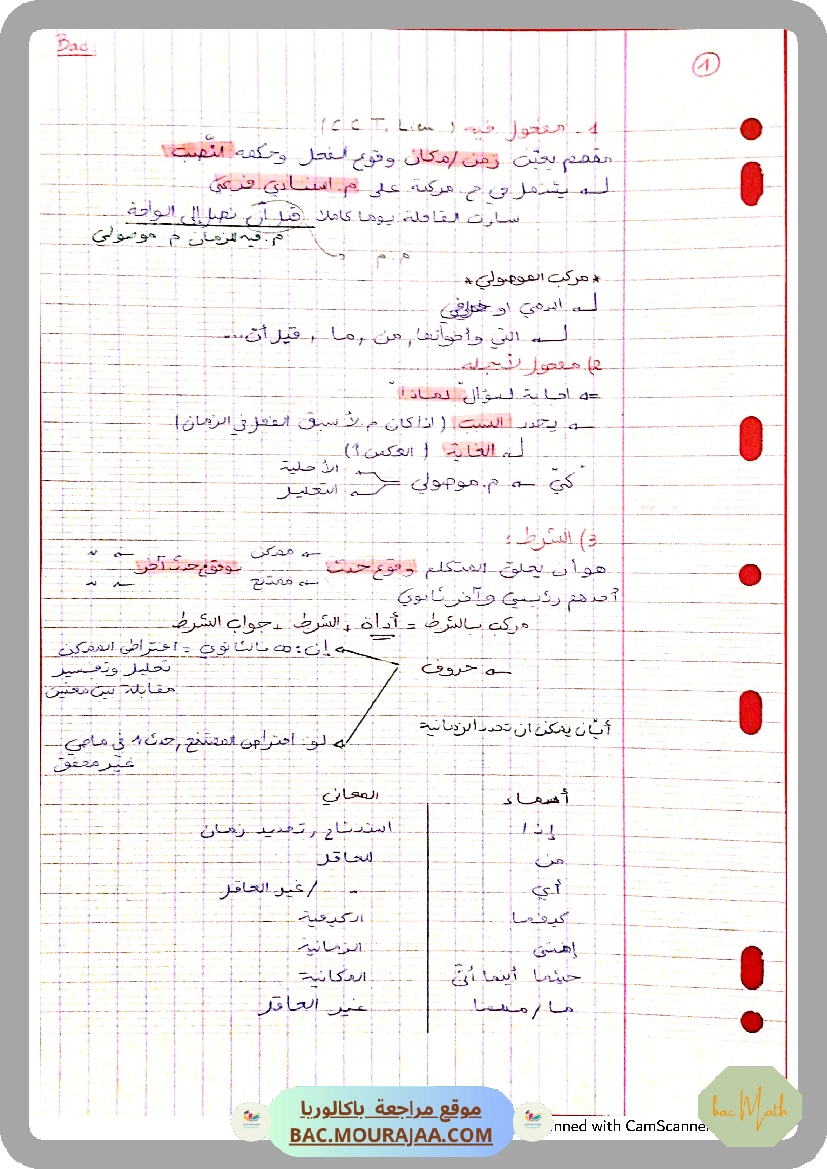 Bac:
1
1 - مفعول فيه ( C C T, Lieu )
متمم يعيّن زمن/مكان وقوع الفعل وحكمه النّصب
يشتمل في ج. مركبة على م. اسنادي فرعي
سارت القافلة يوما كاملا قبل أن نصل إلى الواحة
م. فيه للزمان م موصولي
م . م
* مركب الموصولي *
اسمي او حرفي
التي وأخواتها, من , ما , قبل أن...
2) مفعول لأجله
= اجابة لسؤال "لماذا"
يحدد السبب ( اذا كان م لأ سبق الفعل في الزمان)
الغاية ( العكس )
كيّ م. موصولي
الأجلية
التعليل
3) الشرط :
ممكن
هو أن يعلق المتكلم وقوع حدث بوقوع حدث آخر
ممتنع
أحدهم رئيسي وآخر ثانوي
مركب بالشرط = أداة + الشرط + جواب الشرط
حروف
إن : بالثانوي = افتراض الممكن
تعليل وتفسير
مقابلة بين معنيين
أيّان يمكن ان تحدد الزمانية
لو: افتراض الممتنع , حدث 1 في ماضي
غير محقق
أسماء المعاني
إذا استنتاج , تحديد زمان
من للعاقل
أي - /غير العاقل
كيفما الكيفية
الزمانية
حيثما أينما أنّى المكانية
ما / مهما غير العاقل
موقع مراجعة باكالوريا
BAC.MOURAJAA.COM
nned with CamScanner
bac Math